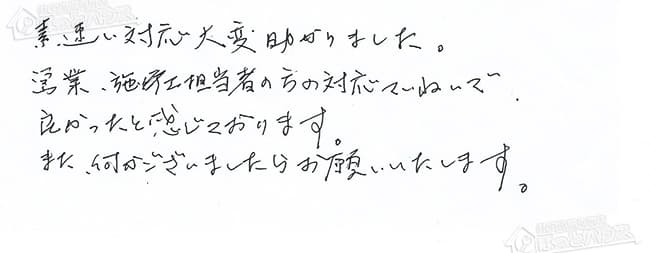 素速い対応大変助かりました。
営業、施工担当者の方の対応ていねいで
良かったと感じております。
また、何かございましたらお願いいたします。
ほっとハウス